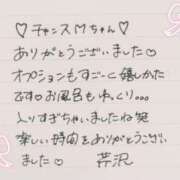 ♡チャンスMちゃん♡
ありがとうございました♡
オプションもすごーく嬉しかた
です♡お風呂もゆっくり...
入りすぎちゃいましたね笑
楽しい時間をありがとうござい
ました♡ 芹沢